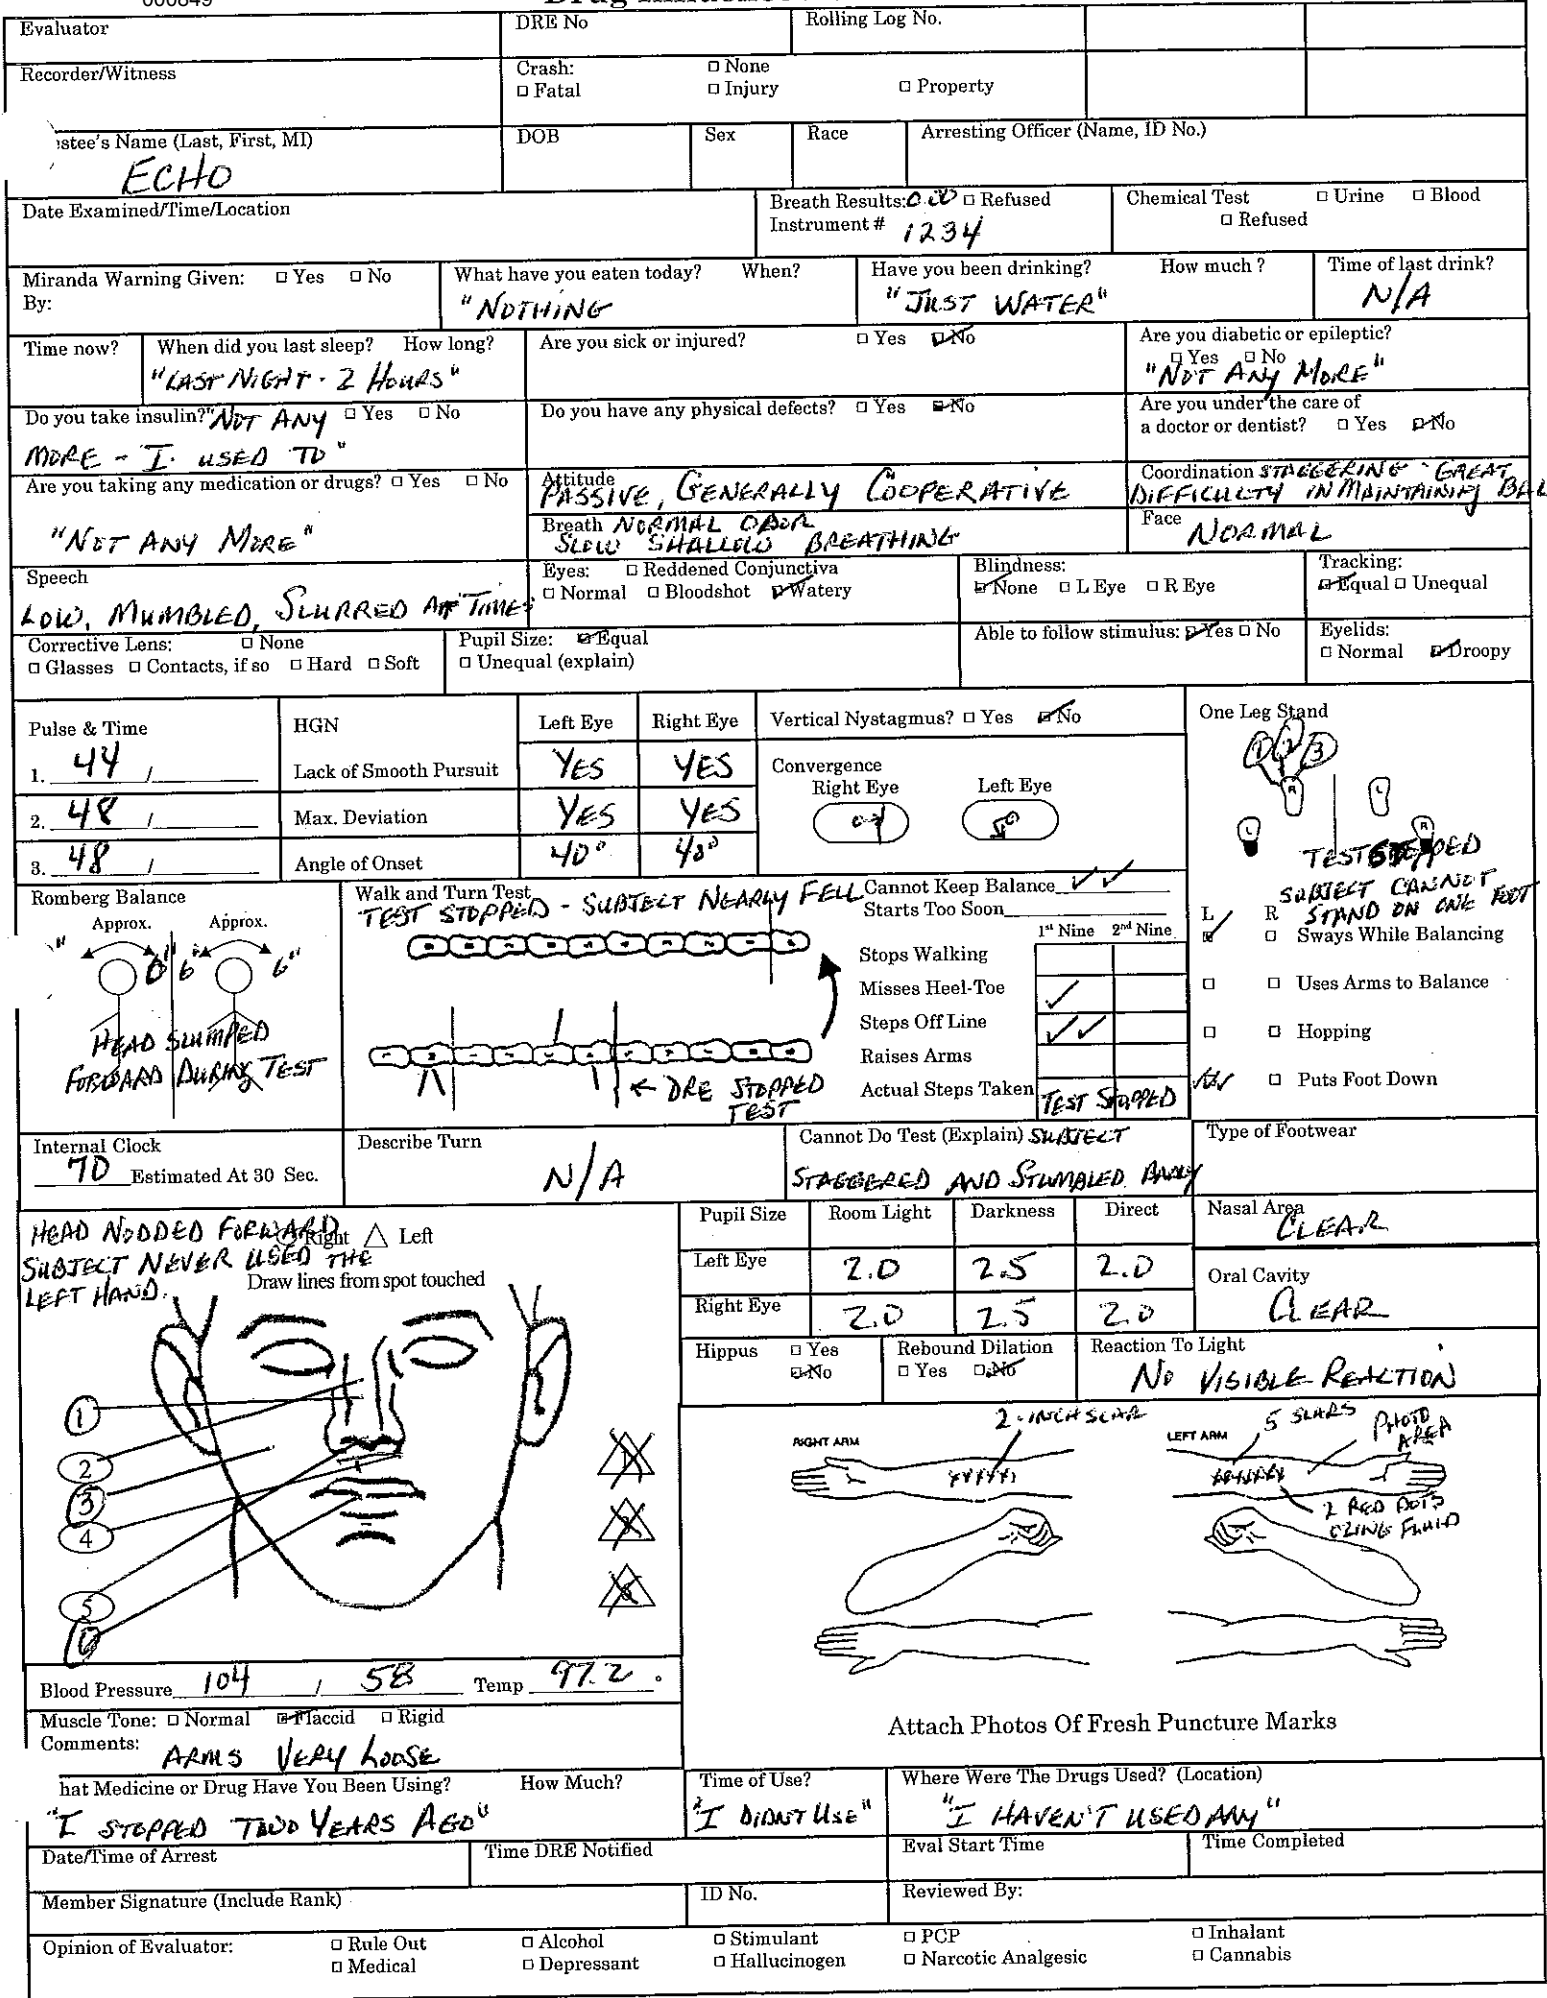 000849
Evaluator
DRE No
Rolling Log No.
Recorder/Witness
Crash: □ None
□ Fatal □ Injury □ Property
stee's Name (Last, First, MI)
ECHO
DOB
Sex
Race
Arresting Officer (Name, ID No.)
Date Examined/Time/Location
Breath Results: 0.00 □ Refused
Instrument # 1234
Chemical Test □ Urine □ Blood
□ Refused
Miranda Warning Given: □ Yes □ No
By:
What have you eaten today? When?
"NOTHING
Have you been drinking? How much?
"JUST WATER"
Time of last drink?
N/A
Time now?
When did you last sleep? How long?
"LAST NIGHT - 2 HOURS"
Are you sick or injured? □ Yes ☑ No
Are you diabetic or epileptic?
□ Yes □ No
"NOT ANY MORE"
Do you take insulin? "NOT ANY □ Yes □ No
MORE - I USED TO"
Do you have any physical defects? □ Yes ☑ No
Are you under the care of
a doctor or dentist? □ Yes ☑ No
Are you taking any medication or drugs? □ Yes □ No
"NOT ANY MORE"
Attitude
PASSIVE, GENERALLY COOPERATIVE
Coordination STAGGERING - GREAT
DIFFICULTY IN MAINTAINING BAL
Breath NORMAL ODOR
SLOW SHALLOW BREATHING
Face
NORMAL
Speech
LOW, MUMBLED, SLURRED AT TIMES
Eyes: □ Reddened Conjunctiva
□ Normal □ Bloodshot ☑ Watery
Blindness:
☑ None □ L Eye □ R Eye
Tracking:
☑ Equal □ Unequal
Corrective Lens: □ None
□ Glasses □ Contacts, if so □ Hard □ Soft
Pupil Size: ☑ Equal
□ Unequal (explain)
Able to follow stimulus: ☑ Yes □ No
Eyelids:
□ Normal ☑ Droopy
Pulse & Time
1. 44 /
2. 48 /
3. 48 /
HGN Left Eye Right Eye
Lack of Smooth Pursuit YES YES
Max. Deviation YES YES
Angle of Onset 40° 40°
Vertical Nystagmus? □ Yes ☑ No
Convergence
Right Eye Left Eye
One Leg Stand
1 2 3
R L
L R
TEST STOPPED
SUBJECT CANNOT
STAND ON ONE FOOT
L R
☑ □ Sways While Balancing
□ □ Uses Arms to Balance
□ □ Hopping
□ Puts Foot Down
Romberg Balance
Approx. Approx.
0" 6" 6"
HEAD SLUMPED
FORWARD DURING TEST
Walk and Turn Test
TEST STOPPED - SUBJECT NEARLY FELL
← DRE STOPPED
TEST
Cannot Keep Balance ✓ ✓
Starts Too Soon
1st Nine 2nd Nine
Stops Walking
Misses Heel-Toe ✓
Steps Off Line ✓✓
Raises Arms
Actual Steps Taken TEST STOPPED
Internal Clock
70 Estimated At 30 Sec.
Describe Turn
N/A
Cannot Do Test (Explain) SUBJECT
STAGGERED AND STUMBLED BADLY
Type of Footwear
HEAD NODDED FORWARD
SUBJECT NEVER USED THE
LEFT HAND.
Right △ Left
Draw lines from spot touched
1
2
3
4
5
6
1
2
3
Pupil Size Room Light Darkness Direct
Left Eye 2.0 2.5 2.0
Right Eye 2.0 2.5 2.0
Nasal Area
CLEAR
Oral Cavity
CLEAR
Hippus □ Yes
☑ No
Rebound Dilation
□ Yes ☑ No
Reaction To Light
NO VISIBLE REACTION
RIGHT ARM
2-INCH SCAR
LEFT ARM
5 SCARS
PHOTO
AREA
2 RED DOTS
OZING FLUID
Attach Photos Of Fresh Puncture Marks
Blood Pressure 104 / 58 Temp 97.2 °
Muscle Tone: □ Normal ☑ Flaccid □ Rigid
Comments:
ARMS VERY LOOSE
hat Medicine or Drug Have You Been Using? How Much?
"I STOPPED TWO YEARS AGO"
Time of Use?
"I DIDNT USE"
Where Were The Drugs Used? (Location)
"I HAVEN'T USED ANY"
Date/Time of Arrest
Time DRE Notified
Eval Start Time
Time Completed
Member Signature (Include Rank)
ID No.
Reviewed By:
Opinion of Evaluator: □ Rule Out □ Alcohol □ Stimulant □ PCP □ Inhalant
□ Medical □ Depressant □ Hallucinogen □ Narcotic Analgesic □ Cannabis